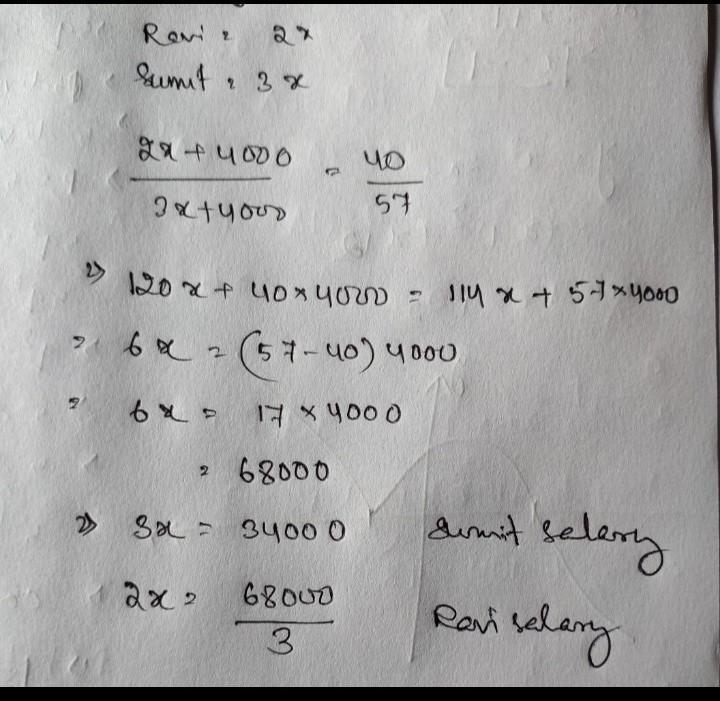 Ravi = 2x
Sumit = 3x
2x + 4000 / 3x + 4000 = 40 / 57
⇒ 120x + 40 × 4000 = 114x + 57 × 4000
= 6x = (57 - 40) 4000
= 6x = 17 × 4000
= 68000
⇒ 3x = 34000 Sumit selary
2x = 68000 / 3 Ravi selary